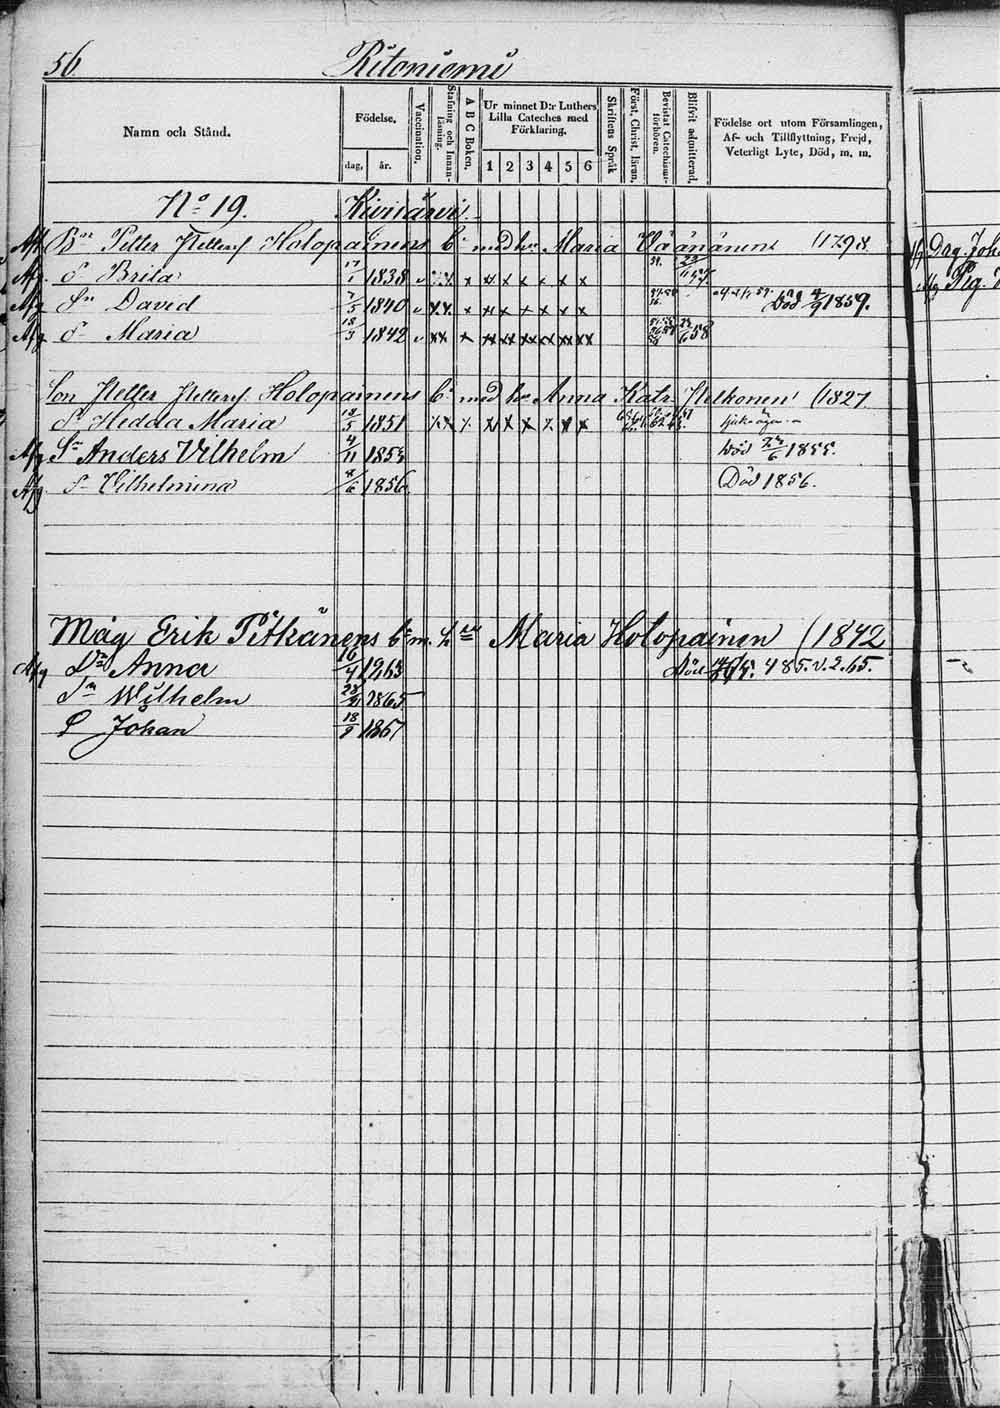 56. Ritoniemi
Namn och Stånd. Födelse. dag, år. Vaccination. Stafning och Innanläsning. A B C Boken. Ur minnet D:r Luthers Lilla Cateches med Förklaring. 1 2 3 4 5 6 Skriftens Språk Först. Christ. läran. Bevistat Catechismiförhören. Blifvit admitterad. Födelse ort utom Församlingen, Af- och Tillflyttning, Frejd, Veterligt Lyte, Död, m. m.
No 19. Kivisärvi
Afg Bn Petter Petterss Holopainens E: med hu Maria Väänänen (1798.
Afg. d Brita 17/1 1838
Afg Sn David 7/5 1840 Död 4/9 1859.
Afg d Maria 18/3 1842 58
Son Petter Petterss Holopainens E: med hu Anna Katr. Pelkonen (1827
d Hedda Maria 18/5 1851
Afg Sn Anders Vilhelm 4/11 1853 Död 1855.
Afg d Vilhelmina 8/6 1856 Död 1856.
Måg Erik Pitkänens E: m. h Maria Holopainen (1842
Afg Dr Anna 16/4 1863 Död 485. v. 2. 65.
Sn Wilhelm 1865
S Johan 18/9 1867